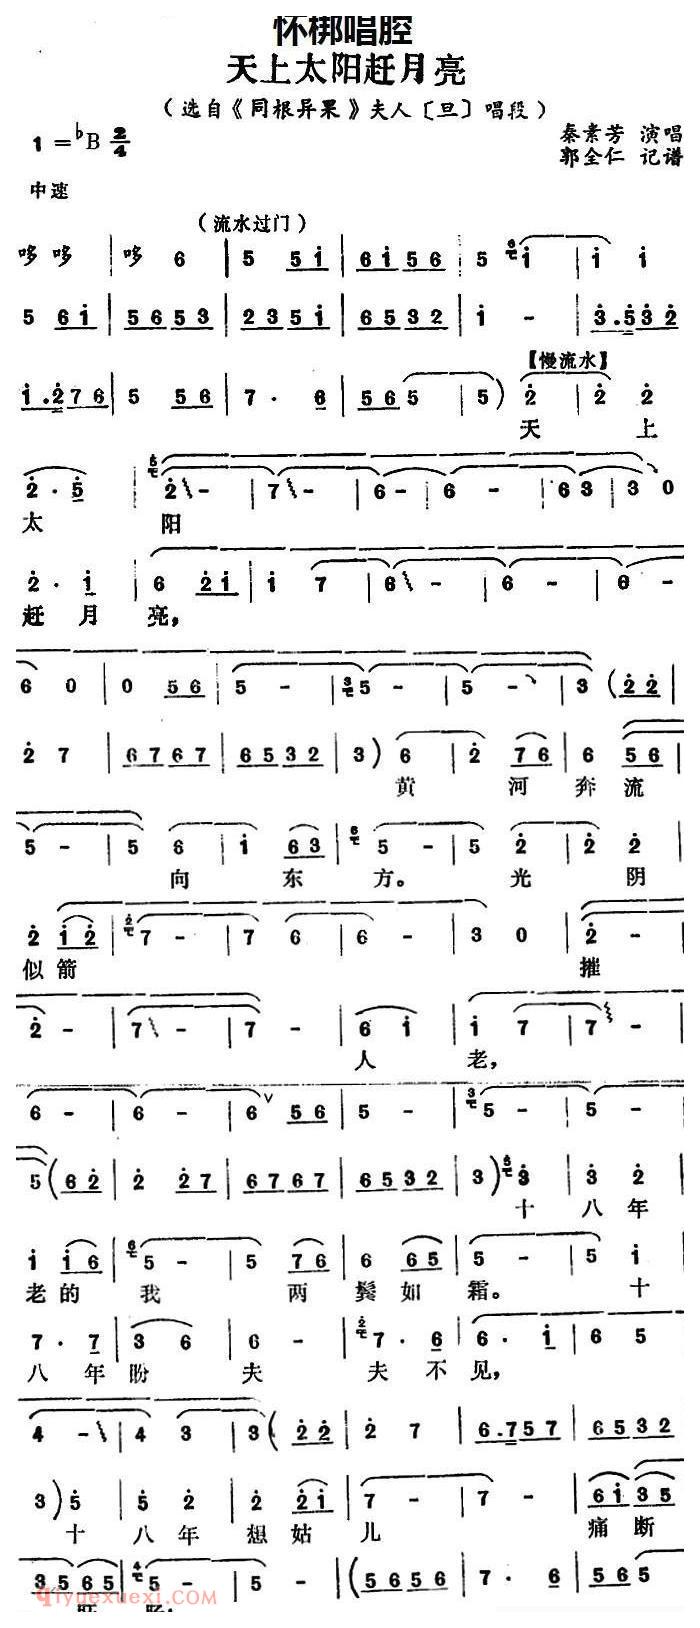 怀梆唱腔
天上太阳赶月亮
(选自《同根异果》夫人〔旦〕唱段)
1=♭B 2/4
秦素芳 演唱
郭全仁 记谱
中速
(流水过门)
哆 哆 | 哆 6 | 5 5i | 6i56 | 5 i | i i
5 6i | 5653 | 235i | 6532 | i - | 3.532
i.276 | 5 56 | 7. 6 | 565 | 5) 2 | 2 2
【慢流水】
天 上
2. 5 | 2 - | 7 - | 6 - | 6 - | 63 | 3 0
太 阳
2. i | 6 2i | i 7 | 6 - | 6 - | 6 -
赶 月 亮,
6 0 | 0 56 | 5 - | 5 - | 5 - | 3 (22
2 7 | 6767 | 6532 | 3) 6 | 2 76 | 6 56
黄 河 奔 流
5 - | 5 6 | i 63 | 5 - | 5 2 | 2 2
向 东 方。 光 阴
2 i2 | 7 - | 7 6 | 6 - | 3 0 | 2 -
似 箭 摧
2 - | 7 - | 7 - | 6 i | i 7 | 7
人 老,
6 - | 6 - | 6 56 | 5 - | 5 - | 5 -
5 (62 | 2 27 | 6767 | 6532 | 3) 3 | 3 2
十 八 年
i i6 | 5 - | 5 76 | 6 65 | 5 - | 5 i
老 的 我 两 鬓 如 霜。 十
7. 7 | 3 6 | 6 - | 7. 6 | 6. i | 6 5
八 年 盼 夫 夫 不 见,
4 - | 4 3 | 3 (22 | 2 7 | 6.757 | 6532
3) 5 | 5 2 | 2 2i | 7 - | 7 - | 6i35
十 八 年 想 姑 儿 痛 断
3565 | 5 - | 5 - | (5656 | 7. 6 | 565
qiyuexuexi.com